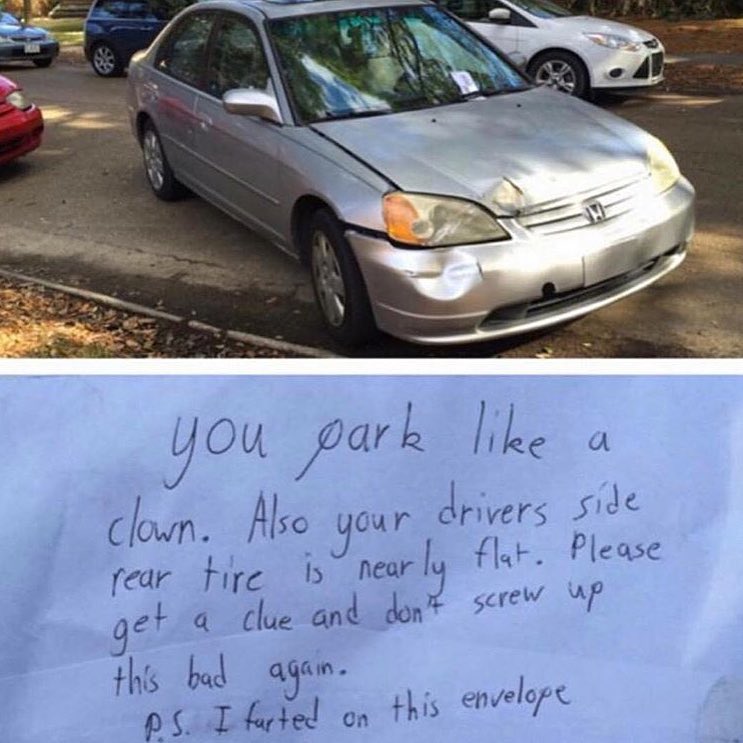 you park like a
clown. Also your drivers side
rear tire is nearly flat. Please
get a clue and don't screw up
this bad again.
P.S. I farted on this envelope